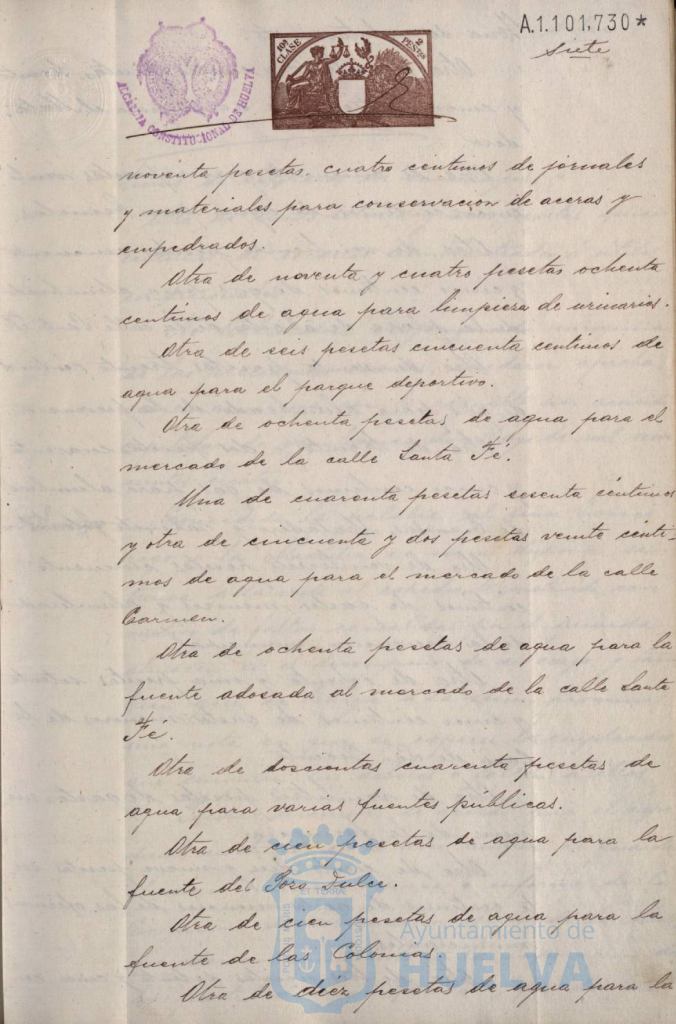 A.1.101.730*
siete
10ª CLASE
2 PESETAS
ALCALDIA CONSTITUCIONAL DE HUELVA
noventa pesetas cuatro céntimos de jornales
y materiales para conservacion de aceras y
empedrados.
Otra de noventa y cuatro pesetas ochenta
centimos de agua para limpieza de urinarios.
Otra de seis pesetas cincuenta centimos de
agua para el parque deportivo.
Otra de ochenta pesetas de agua para el
mercado de la calle Santa Fé.
Una de cuarenta pesetas sesenta céntimos
y otra de cincuenta y dos pesetas veinte cénti-
mos de agua para el mercado de la calle
Carmen.
Otra de ochenta pesetas de agua para la
fuente adosada al mercado de la calle Santa
Fé.
Otra de doscientas cuarenta pesetas de
agua para varias fuentes públicas.
Otra de cien pesetas de agua para la
fuente del Pozo Dulce.
Otra de cien pesetas de agua para la
fuente de las Colonias.
Otra de diez pesetas de agua para la
Ayuntamiento de
HUELVA